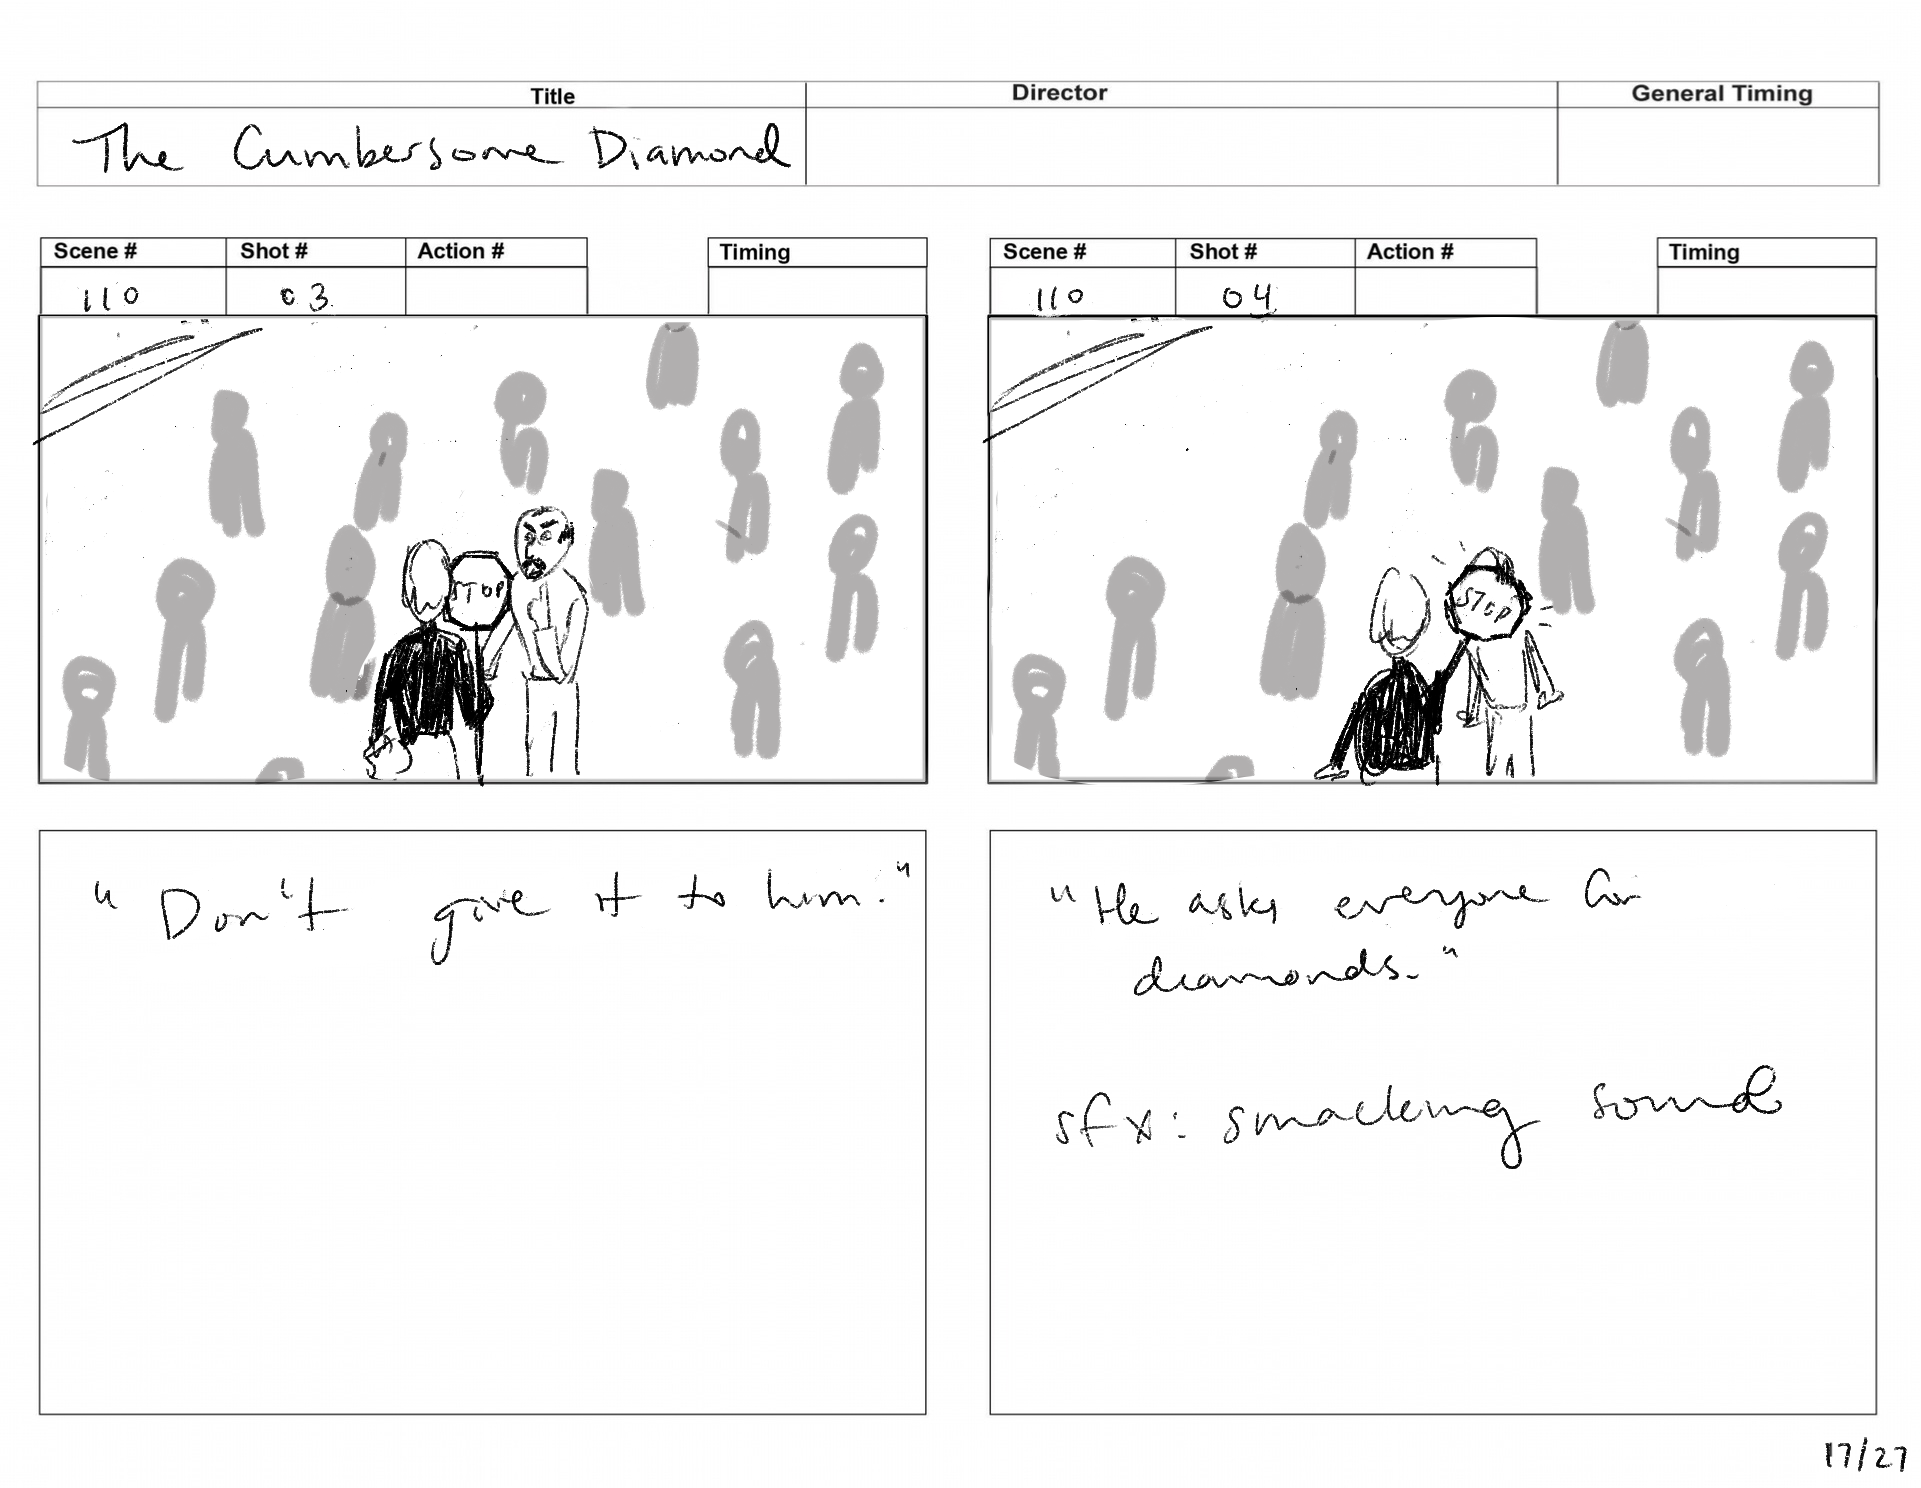 Title
Director
General Timing
The Cumbersome Diamond
Scene #
Shot #
Action #
Timing
110
03
STOP
"Don't give it to him."
Scene #
Shot #
Action #
Timing
110
04
STOP
"He asks everyone for
diamonds."
sfx: smacking sound
17/27